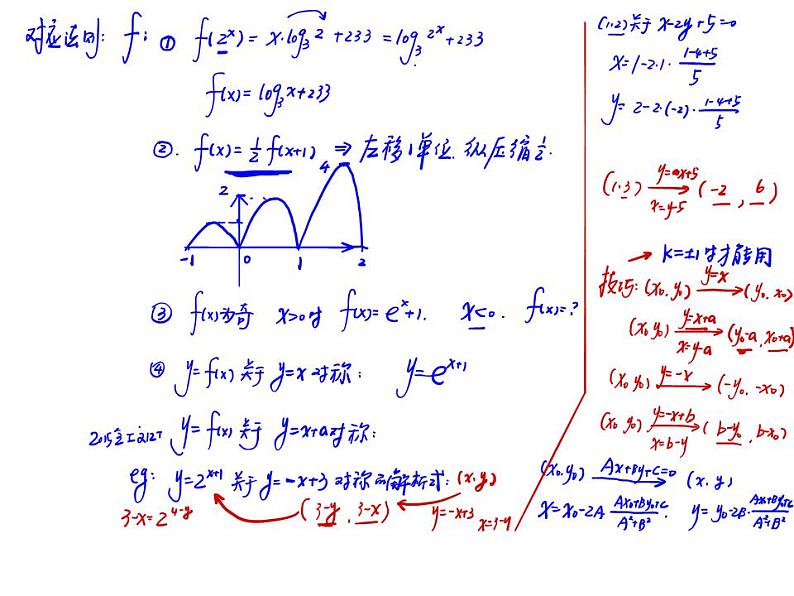 对应法则: f: ① f(2^x) = x·log_3 2 + 233 = log_3 2^x + 233
f(x) = log_3 x + 233
②. f(x) = 1/2 f(x+1) ⇒ 左移1单位. 纵压缩 1/2.
4
2
-1 0 1 2
③ f(x)为奇 x>0时 f(x) = e^x+1. x<0. f(x)=?
④ y=f(x) 关于 y=x 对称: y=e^{x+1}
y=f(x) 关于 y=x+a 对称:
eg: y=2^{x+1} 关于 y=-x+3 对称的解析式: (x,y)
3-x=2^{4-y} (3-y, 3-x) y=-x+3 x=3-y
(1,2) 关于 x-2y+5=0
x=1-2·1·(1-4+5)/5
y=2-2·(-2)·(1-4+5)/5
(1,3) y=x+5 x=y-5 → (-2, 6)
→ k=±1时才能用
技巧: (x_0, y_0) y=x → (y_0, x_0)
(x_0, y_0) y=x+a x=y-a → (y_0-a, x_0+a)
(x_0, y_0) y=-x → (-y_0, -x_0)
(x_0, y_0) y=-x+b x=b-y → (b-y_0, b-x_0)
(x_0, y_0) Ax+By+C=0 → (x, y)
x=x_0-2A (Ax_0+By_0+C)/(A²+B²). y=y_0-2B·(Ax_0+By_0+C)/(A²+B²)